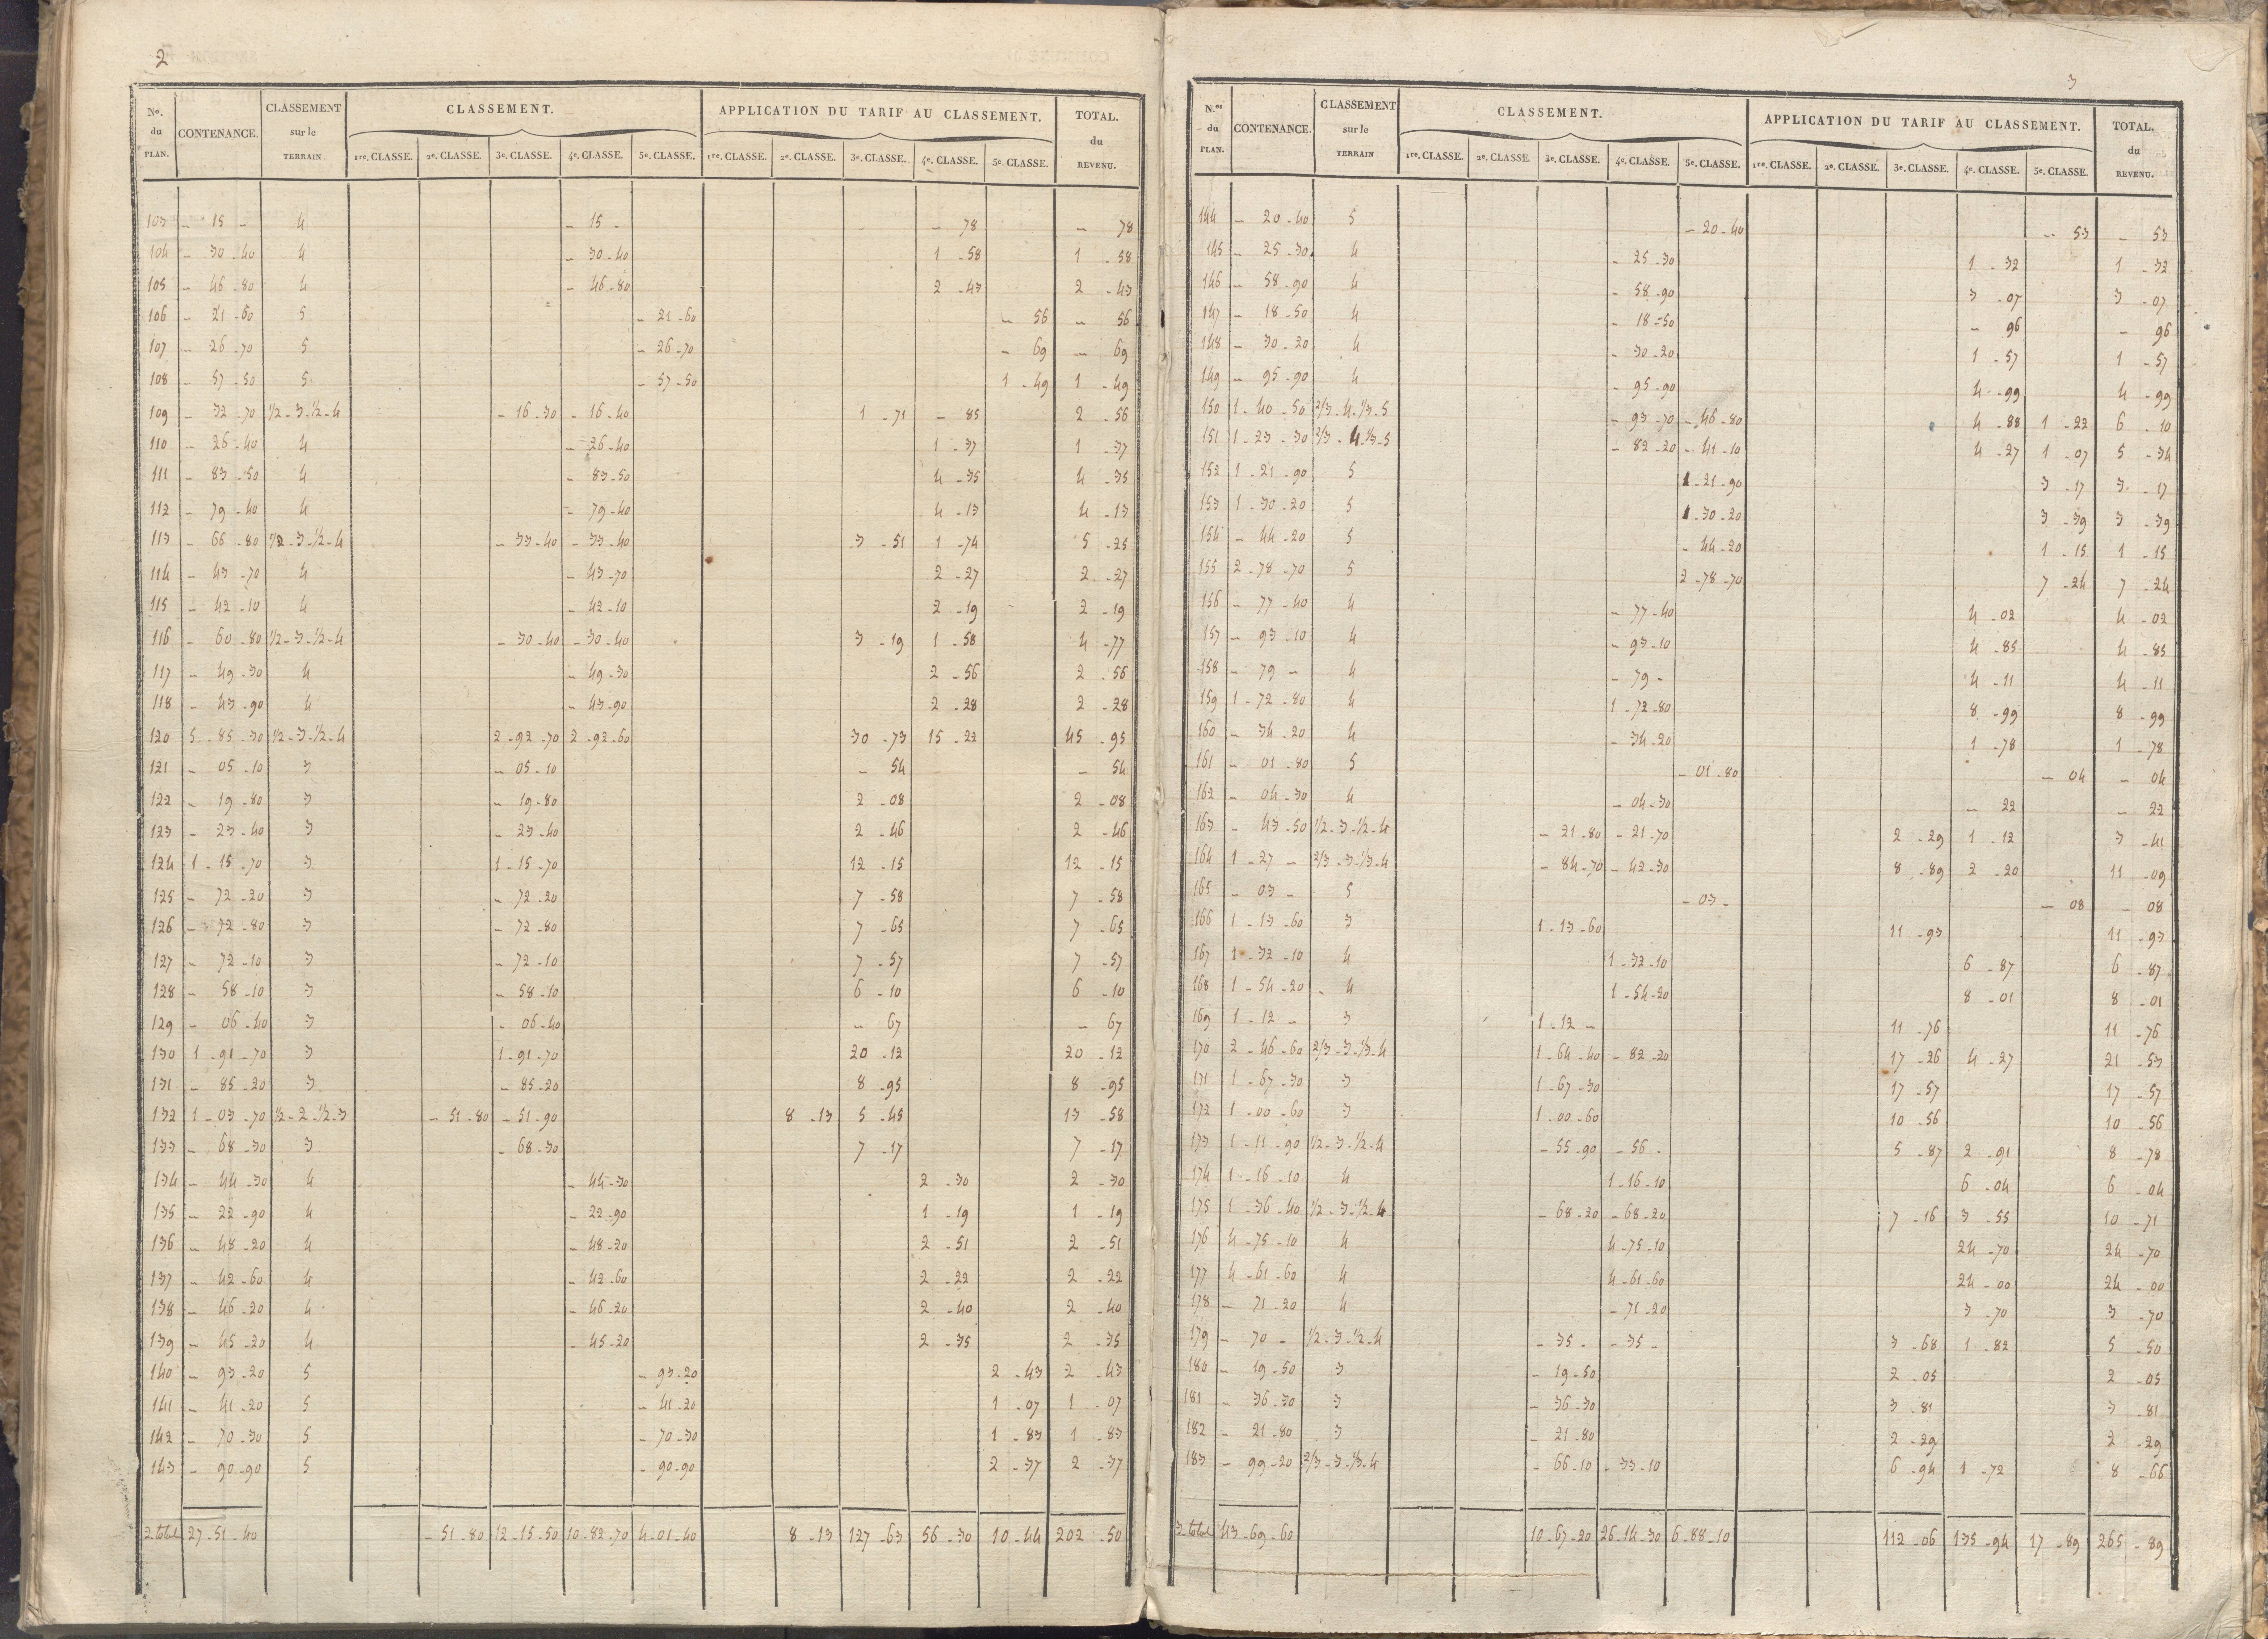 2
No. du PLAN. CONTENANCE. CLASSEMENT sur le TERRAIN CLASSEMENT. APPLICATION DU TARIF AU CLASSEMENT. TOTAL. du REVENU.
1re. CLASSE. 2e. CLASSE. 3e. CLASSE. 4e. CLASSE. 5e. CLASSE. 1re. CLASSE. 2e. CLASSE. 3e. CLASSE. 4e. CLASSE. 5e. CLASSE.
103 - 15 - 4 - 15 - - 78 - 78
104 - 30 - 40 4 - 30 - 40 1 - 58 1 - 58
105 - 46 - 80 4 - 46 - 80 2 - 43 2 - 43
106 - 21 - 60 5 - 21 - 60 - 56 - 56
107 - 26 - 70 5 - 26 - 70 - 69 - 69
108 - 57 - 50 5 - 57 - 50 1 - 49 1 - 49
109 - 32 - 70 1/2 - 3 - 1/2 - 4 - 16 - 30 - 16 - 40 1 - 71 - 85 2 - 56
110 - 26 - 40 4 - 26 - 40 1 - 37 1 - 37
111 - 83 - 50 4 - 83 - 50 4 - 35 4 - 35
112 - 79 - 40 4 - 79 - 40 4 - 13 4 - 13
113 - 66 - 80 1/2 - 3 - 1/2 - 4 - 33 - 40 - 33 - 40 3 - 51 1 - 74 5 - 25
114 - 43 - 70 4 - 43 - 70 2 - 27 2 - 27
115 - 42 - 10 4 - 42 - 10 2 - 19 2 - 19
116 - 60 - 80 1/2 - 3 - 1/2 - 4 - 30 - 40 - 30 - 40 3 - 19 1 - 58 4 - 77
117 - 49 - 30 4 - 49 - 30 2 - 56 2 - 56
118 - 43 - 90 4 - 43 - 90 2 - 28 2 - 28
120 5 - 85 - 30 1/2 - 3 - 1/2 - 4 2 - 92 - 70 2 - 92 - 60 30 - 73 15 - 22 45 - 95
121 - 05 - 10 3 - 05 - 10 - 54 - 54
122 - 19 - 80 3 - 19 - 80 2 - 08 2 - 08
123 - 23 - 40 3 - 23 - 40 2 - 46 2 - 46
124 1 - 15 - 70 3 1 - 15 - 70 12 - 15 12 - 15
125 - 72 - 20 3 - 72 - 20 7 - 58 7 - 58
126 - 72 - 80 3 - 72 - 80 7 - 65 7 - 65
127 - 72 - 10 3 - 72 - 10 7 - 57 7 - 57
128 - 58 - 10 3 - 58 - 10 6 - 10 6 - 10
129 - 06 - 40 3 - 06 - 40 - 67 - 67
130 1 - 91 - 70 3 1 - 91 - 70 20 - 12 20 - 12
131 - 85 - 20 3 - 85 - 20 8 - 95 8 - 95
132 1 - 03 - 70 1/2 - 2 - 1/2 - 3 - 51 - 80 - 51 - 90 8 - 13 5 - 45 13 - 58
133 - 68 - 30 3 - 68 - 30 7 - 17 7 - 17
134 - 44 - 30 4 - 44 - 30 2 - 30 2 - 30
135 - 22 - 90 4 - 22 - 90 1 - 19 1 - 19
136 - 48 - 20 4 - 48 - 20 2 - 51 2 - 51
137 - 42 - 60 4 - 42 - 60 2 - 22 2 - 22
138 - 46 - 20 4 - 46 - 20 2 - 40 2 - 40
139 - 45 - 20 4 - 45 - 20 2 - 35 2 - 35
140 - 93 - 20 5 - 93 - 20 2 - 43 2 - 43
141 - 41 - 20 5 - 41 - 20 1 - 07 1 - 07
142 - 70 - 30 5 - 70 - 30 1 - 83 1 - 83
143 - 90 - 90 5 - 90 - 90 2 - 37 2 - 37
2. total 27 - 51 - 40 - 51 - 80 12 - 15 - 50 10 - 82 - 70 4 - 01 - 40 8 - 13 127 - 63 56 - 30 10 - 44 202 - 50
3
N.os du PLAN. CONTENANCE. CLASSEMENT sur le TERRAIN CLASSEMENT. APPLICATION DU TARIF AU CLASSEMENT. TOTAL. du REVENU.
1re. CLASSE. 2e. CLASSE. 3e. CLASSE. 4e. CLASSE. 5e. CLASSE. 1re. CLASSE. 2e. CLASSE. 3e. CLASSE. 4e. CLASSE. 5e. CLASSE.
144 - 20 - 40 5 - 20 - 40 - 53 - 53
145 - 25 - 30 4 - 25 - 30 1 - 32 1 - 32
146 - 58 - 90 4 - 58 - 90 3 - 07 3 - 07
147 - 18 - 50 4 - 18 - 50 - 96 - 96
148 - 30 - 20 4 - 30 - 20 1 - 57 1 - 57
149 - 95 - 90 4 - 95 - 90 4 - 99 4 - 99
150 1 - 40 - 50 2/3 - 4 - 1/3 - 5 - 93 - 70 - 46 - 80 4 - 88 1 - 22 6 - 10
151 1 - 23 - 30 2/3 - 4 - 1/3 - 5 - 82 - 20 - 41 - 10 4 - 27 1 - 07 5 - 34
152 1 - 21 - 90 5 1 - 21 - 90 3 - 17 3 - 17
153 1 - 30 - 20 5 1 - 30 - 20 3 - 39 3 - 39
154 - 44 - 20 5 - 44 - 20 1 - 15 1 - 15
155 2 - 78 - 70 5 2 - 78 - 70 7 - 24 7 - 24
156 - 77 - 40 4 - 77 - 40 4 - 02 4 - 02
157 - 93 - 10 4 - 93 - 10 4 - 85 4 - 85
158 - 79 - 4 - 79 - 4 - 11 4 - 11
159 1 - 72 - 80 4 1 - 72 - 80 8 - 99 8 - 99
160 - 34 - 20 4 - 34 - 20 1 - 78 1 - 78
161 - 01 - 80 5 - 01 - 80 - 04 - 04
162 - 04 - 30 4 - 04 - 30 - 22 - 22
163 - 43 - 50 1/2 - 3 - 1/2 - 4 - 21 - 80 - 21 - 70 2 - 29 1 - 12 3 - 41
164 1 - 27 - 2/3 - 3 - 1/3 - 4 - 84 - 70 - 42 - 30 8 - 89 2 - 20 11 - 09
165 - 03 - 5 - 03 - - 08 - 08
166 1 - 13 - 60 3 1 - 13 - 60 11 - 93 11 - 93
167 1 - 32 - 10 4 1 - 32 - 10 6 - 87 6 - 87
168 1 - 54 - 20 - 4 1 - 54 - 20 8 - 01 8 - 01
169 1 - 12 - 3 1 - 12 - 11 - 76 11 - 76
170 2 - 46 - 60 2/3 - 3 - 1/3 - 4 1 - 64 - 40 - 82 - 20 17 - 26 4 - 27 21 - 53
171 1 - 67 - 30 3 1 - 67 - 30 17 - 57 17 - 57
172 1 - 00 - 60 3 1 - 00 - 60 10 - 56 10 - 56
173 1 - 11 - 90 1/2 - 3 - 1/2 - 4 - 55 - 90 - 56 - 5 - 87 2 - 91 8 - 78
174 1 - 16 - 10 4 1 - 16 - 10 6 - 04 6 - 04
175 1 - 36 - 40 1/2 - 3 - 1/2 - 4 - 68 - 20 - 68 - 20 7 - 16 3 - 55 10 - 71
176 4 - 75 - 10 4 4 - 75 - 10 24 - 70 24 - 70
177 4 - 61 - 60 4 4 - 61 - 60 24 - 00 24 - 00
178 - 71 - 20 4 - 71 - 20 3 - 70 3 - 70
179 - 70 - 1/2 - 3 - 1/2 - 4 - 35 - - 35 - 3 - 68 1 - 82 5 - 50
180 - 19 - 50 3 - 19 - 50 2 - 05 2 - 05
181 - 36 - 30 3 - 36 - 30 3 - 81 3 - 81
182 - 21 - 80 3 - 21 - 80 2 - 29 2 - 29
183 - 99 - 20 2/3 - 3 - 1/3 - 4 - 66 - 10 - 33 - 10 6 - 94 1 - 72 8 - 66
3. total 43 - 69 - 60 10 - 67 - 20 26 - 14 - 30 6 - 88 - 10 112 - 06 135 - 94 17 - 89 265 - 89